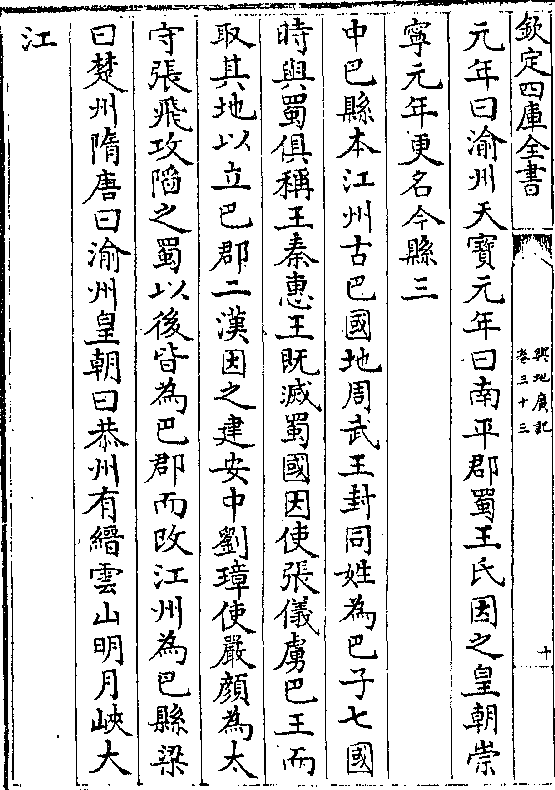 欽定四庫全書
輿地廣記
卷三十三
十
元年曰渝州天寶元年曰南平郡蜀王氏因之皇朝崇
寧元年更名今縣三
中巴縣本江州古巴國地周武王封同姓為巴子七國
時與蜀俱稱王秦惠王既滅蜀國因使張儀虜巴王而
取其地以立巴郡二漢因之建安中劉璋使嚴顔為太
守張飛攻䧟之蜀以後皆為巴郡而改江州為巴縣梁
曰楚州隋唐曰渝州皇朝曰恭州有縉雲山明月峽大
江